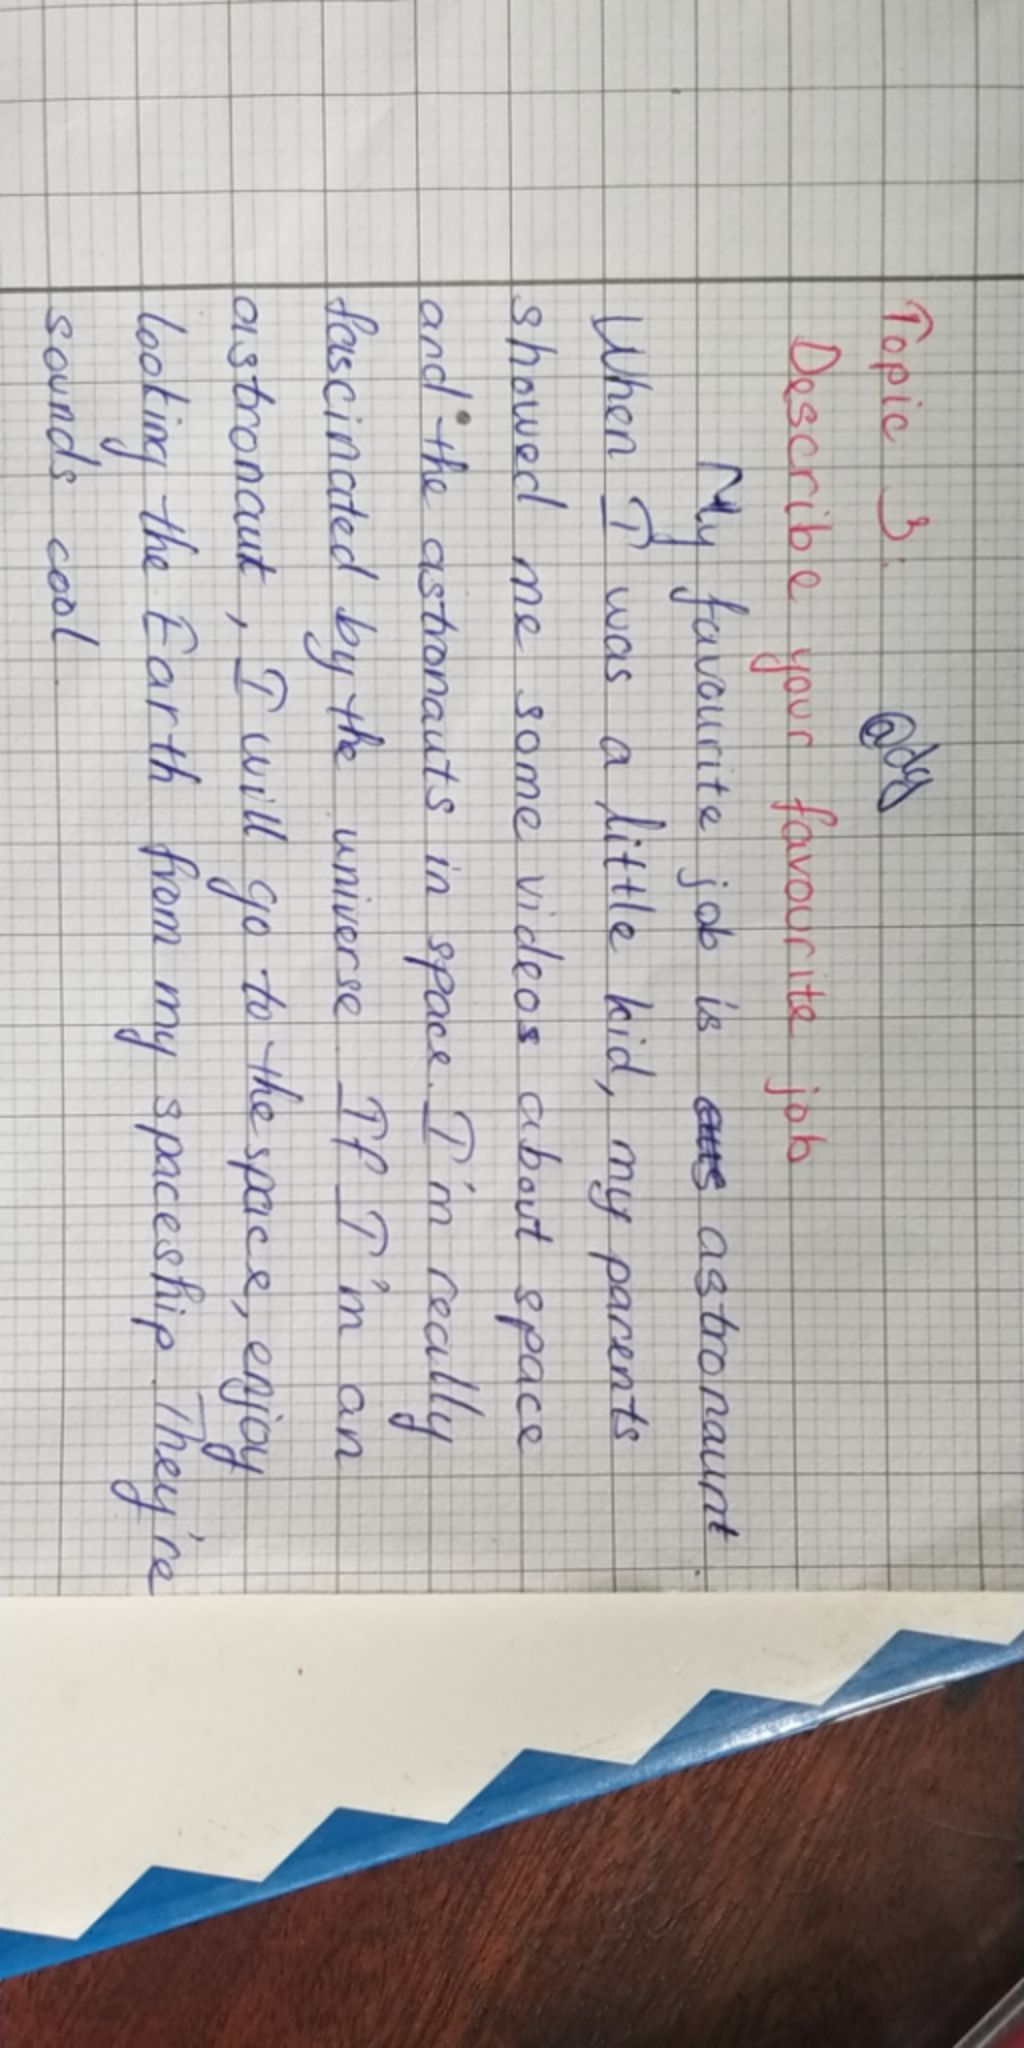 Topic 3:
@dy
Describe your favourite job
My favourite job is astronaunt
When I was a little kid, my parents
showed me some videos about space
and the astronauts in space. I'm really
fascinated by the universe. If I'm an
astronaut, I will go to the space, enjoy
looking the Earth from my spaceship. They're
sounds cool.